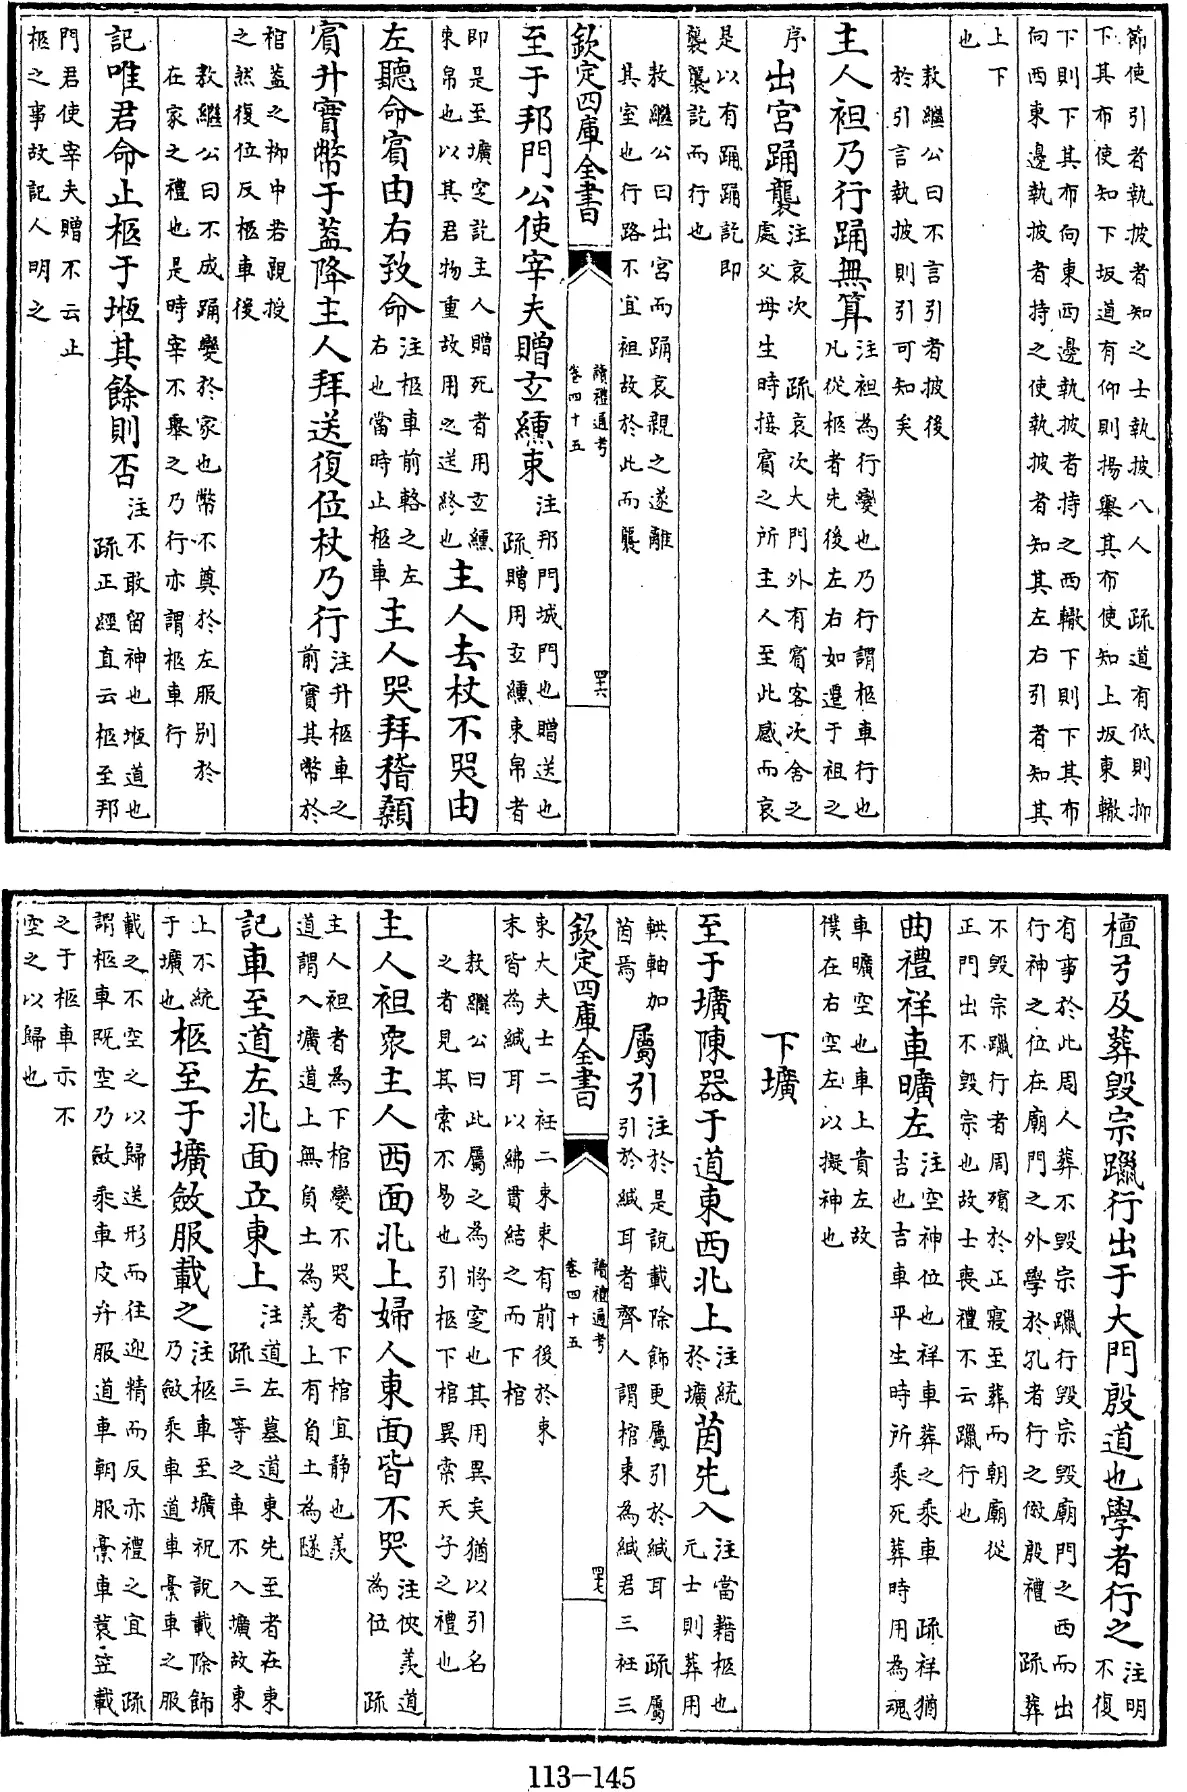 節使引者執披者知之士執披八人　疏道有低則抑
下其布使知下坂道有仰則揚舉其布使知上坂東轍
下則下其布向東西邊執披者持之西轍下則下其布
向西東邊執披者持之使執披者知其左右引者知其
上下
也
敖繼公曰不言引者披後
於引言執披則引可知矣
主人袒乃行踊無算
注袒為行變也乃行謂柩車行也
凡從柩者先後左右如遷于祖之
序
出宮踊襲
注哀次　疏哀次大門外有賓客次舍之
處父母生時接賓之所主人至此感而哀
是以有踊踊訖即
襲襲訖而行也
敖繼公曰出宮而踊哀親之遂離
其室也行路不宜袒故於此而襲
欽定四庫全書
讀禮通考
卷四十五
四六
至于邦門公使宰夫贈玄纁束
注邦門城門也贈送也
疏贈用玄纁束帛者
即是至壙窆訖主人贈死者用玄纁
束帛也以其君物重故用之送終也
主人去杖不哭由
左聽命賓由右致命
注柩車前輅之左
右也當時止柩車
主人哭拜稽顙
賓升實幣于蓋降主人拜送復位杖乃行
注升柩車之
前實其幣於
棺蓋之柳中若親授
之然復位反柩車後
敖繼公曰不成踊變於家也幣不奠於左服別於
在家之禮也是時宰不舉之乃行亦謂柩車行
記唯君命止柩于堩其餘則否
注不敢留神也堩道也
疏正經直云柩至邦
門君使宰夫贈不云止
柩之事故記人明之
檀弓及葬毀宗躐行出于大門殷道也學者行之
注明
不復
有事於此周人葬不毀宗躐行毀宗毀廟門之西而出
行神之位在廟門之外學於孔者行之傚殷禮　疏葬
不毀宗躐行者周殯於正寢至葬而朝廟從
正門出不毀宗也故士喪禮不云躐行也
曲禮祥車曠左
注空神位也祥車葬之乘車　疏祥猶
吉也吉車平生時所乘死葬時用為魂
車曠空也車上貴左故
僕在右空左以擬神也
下壙
至于壙陳器于道東西北上
注統
於壙
茵先入
注當藉柩也
元士則葬用
輁軸加
茵焉
屬引
注於是說載除飾更屬引於緘耳　疏屬
引於緘耳者齊人謂棺束為緘君三衽三
束大夫士二衽二束束有前後於束
末皆為緘耳以紼貫結之而下棺
欽定四庫全書
讀禮通考
卷四十五
四七
敖繼公曰此屬之為將窆也其用異矣猶以引名
之者見其索不易也引柩下棺異索天子之禮也
主人袒衆主人西面北上婦人東面皆不哭
注俠羨道
為位　疏
主人袒者為下棺變不哭者下棺宜靜也羨
道謂入壙道上無負土為羨上有負土為隧
記車至道左北面立東上
注道左墓道東先至者在東
疏三等之車不入壙故東
上不統
于壙也
柩至于壙斂服載之
注柩車至壙祝說載除飾
乃斂乘車道車槀車之服
載之不空之以歸送形而往迎精而反亦禮之宜　疏
謂柩車既空乃斂乘車皮弁服道車朝服槀車蓑笠載
之于柩車示不
空之以歸也
113-145